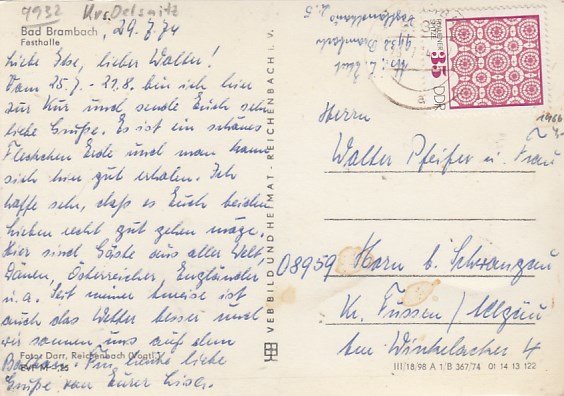 9932 Krs. Oelsnitz
Bad Brambach, 29.7.74
Festhalle
Liebe Else, lieber Walter!
Vom 25.7. - 21.8. bin ich hier
zur Kur und sende Euch sehr
liebe Grüße. Es ist ein schönes
Fleckchen Erde und man kann
sich hier gut erholen. Ich
hoffe sehr, daß es Euch beiden
Lieben recht gut gehen möge.
Hier sind Gäste aus aller Welt,
Dänen, Österreicher, Engländer
u. a. Seit meiner Anreise ist
auch das Wetter besser und
wir sonnen uns auf dem
Balkon. Für heute liebe
Grüße von Eurer Lisa.
Foto: Darr, Reichenbach (Vogtl.)
EVP M 0,25
VEB BILD UND HEIMAT · REICHENBACH i. V.
9932 Brambach
35
DDR
Herrn
Walter Pfeifer u. Frau
D8959 Horn b. Schwangau
Kr. Füssen / Allgäu
Am Winkelacker 4
III/18/98 A 1/B 367/74 01 14 13 122